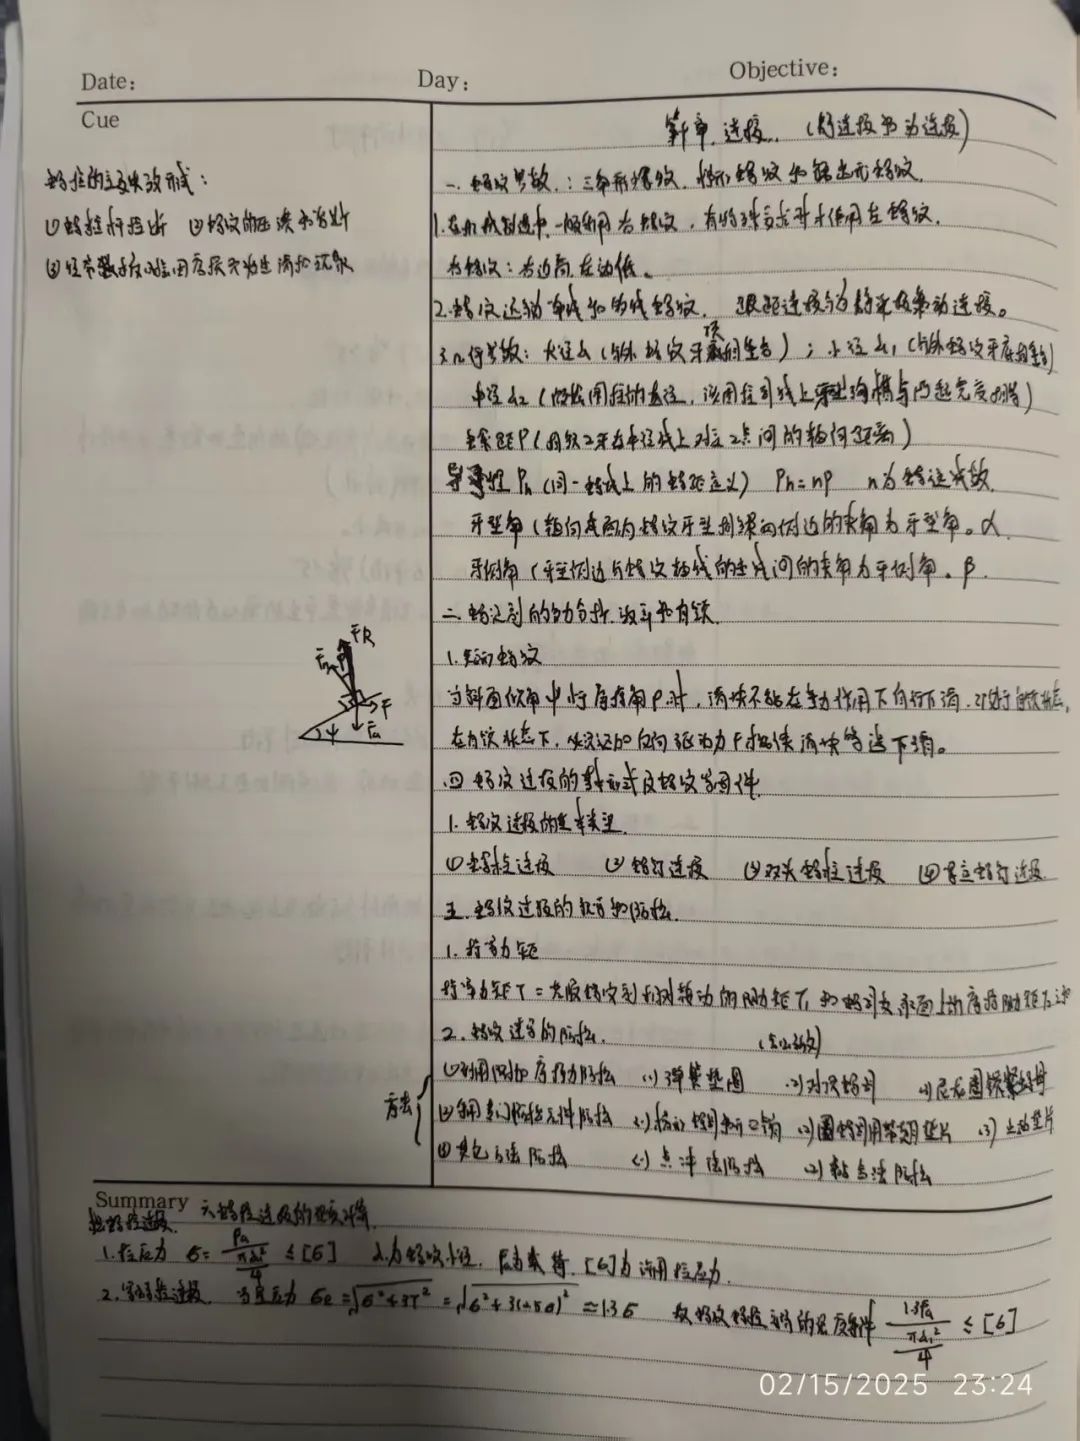 Date:
Day:
Objective:
Cue
第十章 连接 (以连接书为连接)
螺栓的主要失效形式:
①螺栓杆拉断 ②螺纹的压溃和剪断
③经常装拆时因磨损而发生滑扣现象
一. 螺纹参数:三角形螺纹.梯形螺纹和锯齿形螺纹.
1.在机械制造中一般用右螺纹,有特殊要求时才使用左螺纹.
右螺纹:右边高.左边低。
2.螺纹还分单线和多线螺纹.
3.几何参数:大径d(与外螺纹牙顶相重合);小径d₁(与外螺纹牙底相重合)
中径d₂(假想圆柱的直径,该圆柱母线上牙型沟槽与凸起宽度相等)
螺距P(相邻2牙在中径线上对应2点间的轴向距离)
导程Pn(同一螺线上的螺距定义) Pn=nP n为螺旋线数
牙型角(轴向截面内螺纹牙型相邻两侧边的夹角为牙型角。α
牙侧角(牙型侧边与螺纹轴线的垂线间的夹角为牙侧角。β.
二.螺旋副的受力分析.效率和自锁.
1.矩形螺纹
FR
F
Fa
ψ
当斜面倾角ψ小于摩擦角ρ时,滑块不能在重力作用下自行下滑.
在自锁状态下,必须施加反向驱动力F才能使滑块等速下滑。
四 螺纹连接的基本形式及螺纹紧固件
1.螺纹连接的基本类型
①螺栓连接 ②螺钉连接 ③双头螺柱连接 ④紧定螺钉连接
五.螺纹连接的预紧和防松.
1.拧紧力矩
拧紧力矩T=克服螺纹副相对转动的阻力矩T₁和螺母支承面上的摩擦阻力矩T₂之和
2.螺纹连接的防松.
方法
①利用附加摩擦力防松 (1)弹簧垫圈 (2)对顶螺母 (3)尼龙圈锁紧螺母
②采用专门防松元件防松 (1)槽形螺母和开口销 (2)圆螺母用带翅垫片 (3)止动垫片
③其他方法防松 (1)点冲法防松 (2)粘合法防松
Summary 六螺栓连接的强度计算.
松螺栓连接.
1.拉应力 σ=Fa/(πd₁²/4)≤[σ] d₁为螺纹小径. Fa为载荷.[σ]为许用拉应力.
2.紧螺栓连接. 当量应力 σe=√σ²+3τ²=√σ²+3(0.5σ)²≈1.3σ 故螺纹螺栓部分的强度条件 1.3Fa/(πd₁²/4)≤[σ]
02/15/2025 23:24